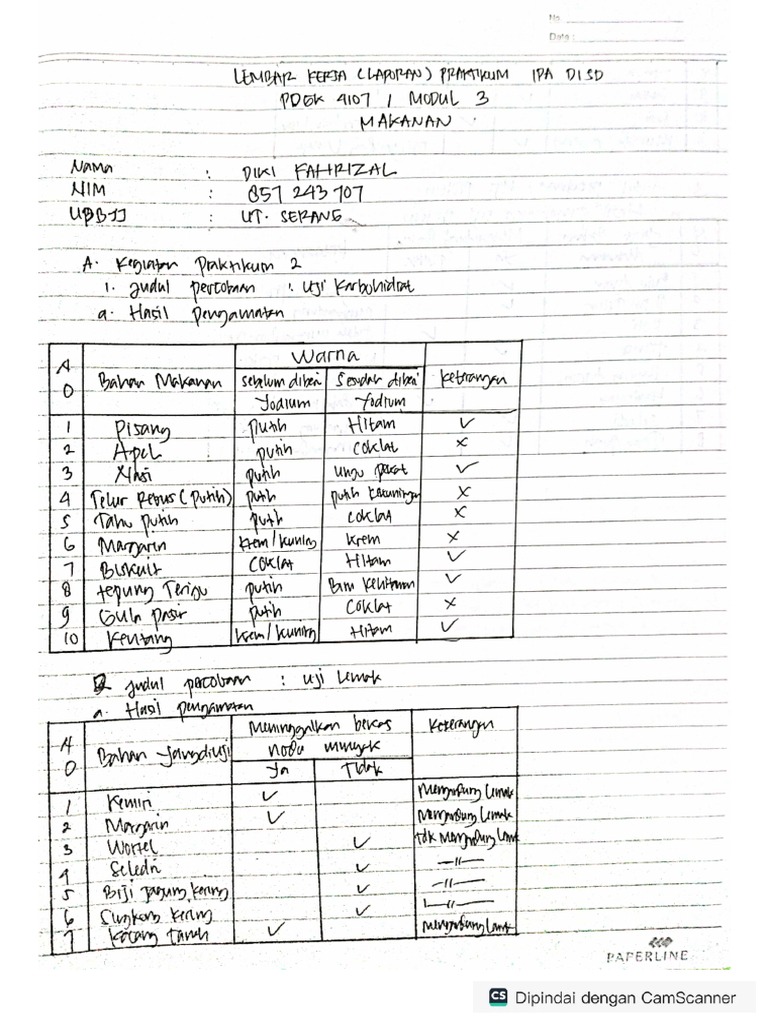 No.
Date :
LEMBAR KERJA (LAPORAN) PRAKTIKUM IPA DI SD
PDGK 4107 / MODUL 3
MAKANAN
Nama : DIKI FAHRIZAL
NIM : 857 243 707
UPBJJ : UT. SERANG
A. Kegiatan Praktikum 2
1. Judul percobaan : Uji Karbohidrat
a. Hasil Pengamatan
NO Bahan Makanan Warna Keterangan
Sebelum diberi Yodium Sesudah diberi Yodium
1 Pisang putih Hitam ✓
2 Apel putih Coklat ×
3 Nasi putih ungu pekat ✓
4 Telur Rebus (Putih) putih putih kekuningan ×
5 Tahu putih putih Coklat ×
6 Margarin krem/kuning krem ×
7 Biskuit Coklat Hitam ✓
8 tepung Terigu putih Biru kehitaman ✓
9 Gula pasir putih Coklat ×
10 Kentang krem/kuning Hitam ✓
2. Judul percobaan : Uji Lemak
a. Hasil pengamatan
NO Bahan yang diuji Meninggalkan bekas noda minyak Keterangan
Ya Tidak
1 Kemiri ✓ Mengandung Lemak
2 Margarin ✓ Mengandung Lemak
3 Wortel ✓ tdk Mengandung Lemak
4 Seledri ✓ —〃—
5 Biji jagung kering ✓ —〃—
6 Singkong kering ✓ —〃—
7 Kacang tanah ✓ Mengandung Lemak
PAPERLINE
CS Dipindai dengan CamScanner